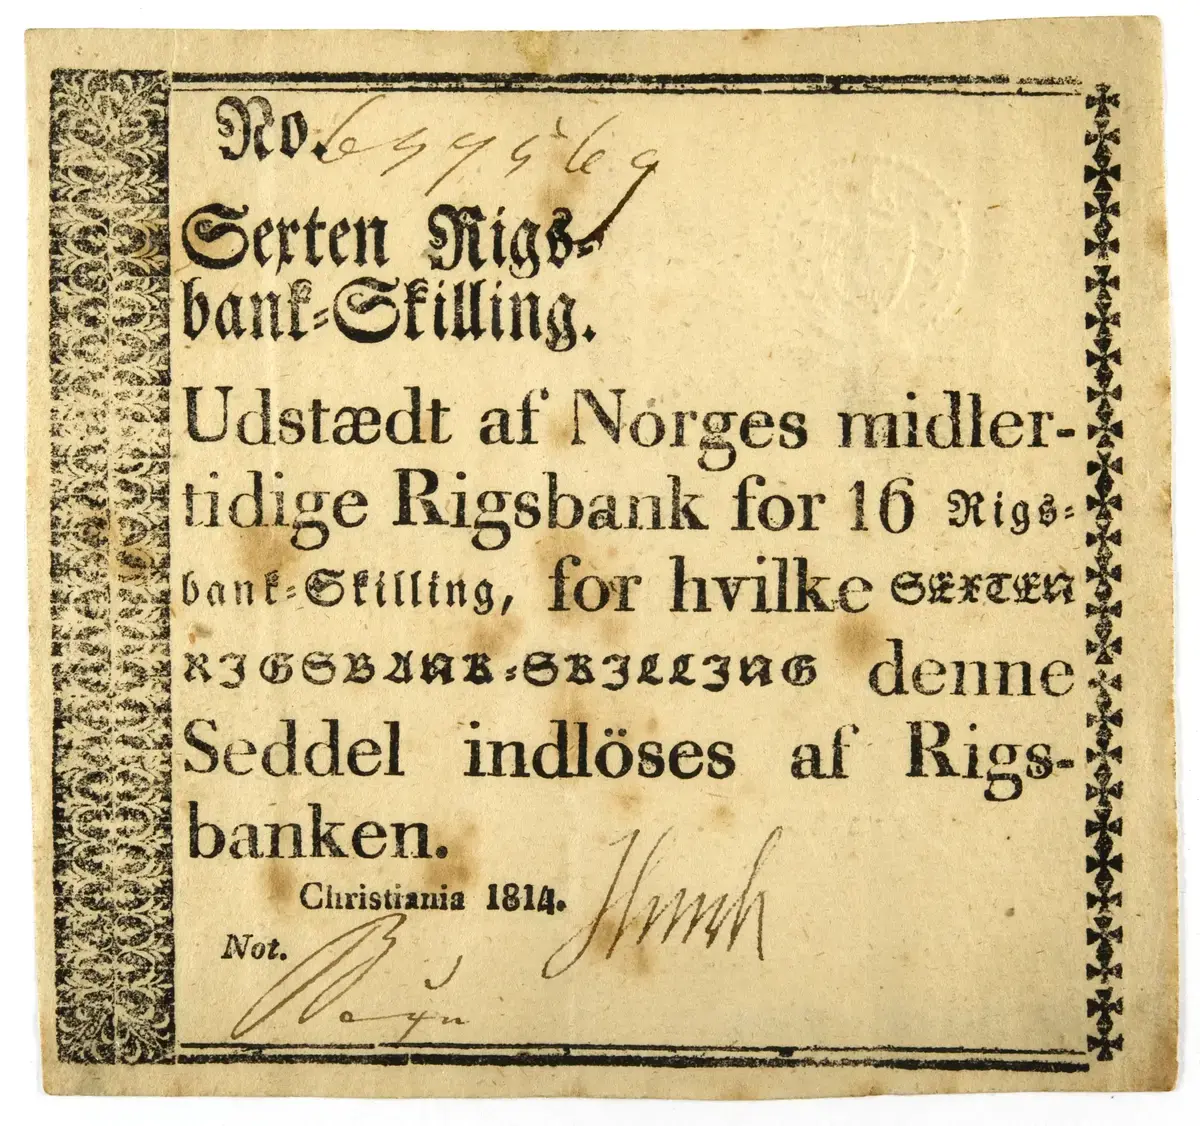 No.
Sexten Rigs-
bank-Skilling.
Udstædt af Norges midler-
tidige Rigsbank for 16 Rigs-
bank-Skilling, for hvilke SEXTEN
RIGSBANK-SKILLING denne
Seddel indlöses af Rigs-
banken.
Christiania 1814.
Not.